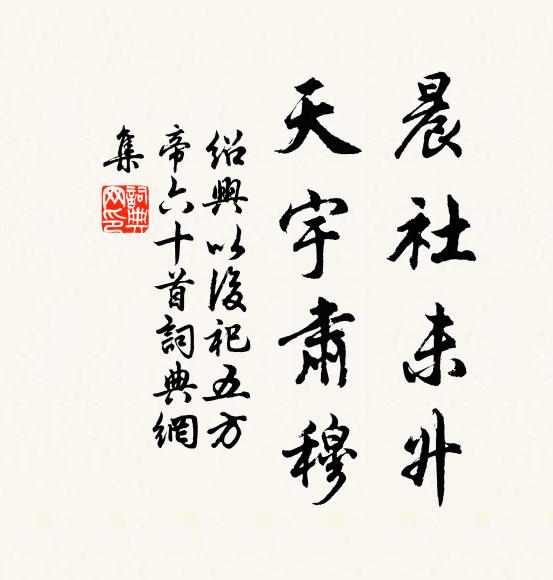 晨社未升
天宇肅穆
紹興以後祀五方
帝六十首詞典網
集
詞典
网印